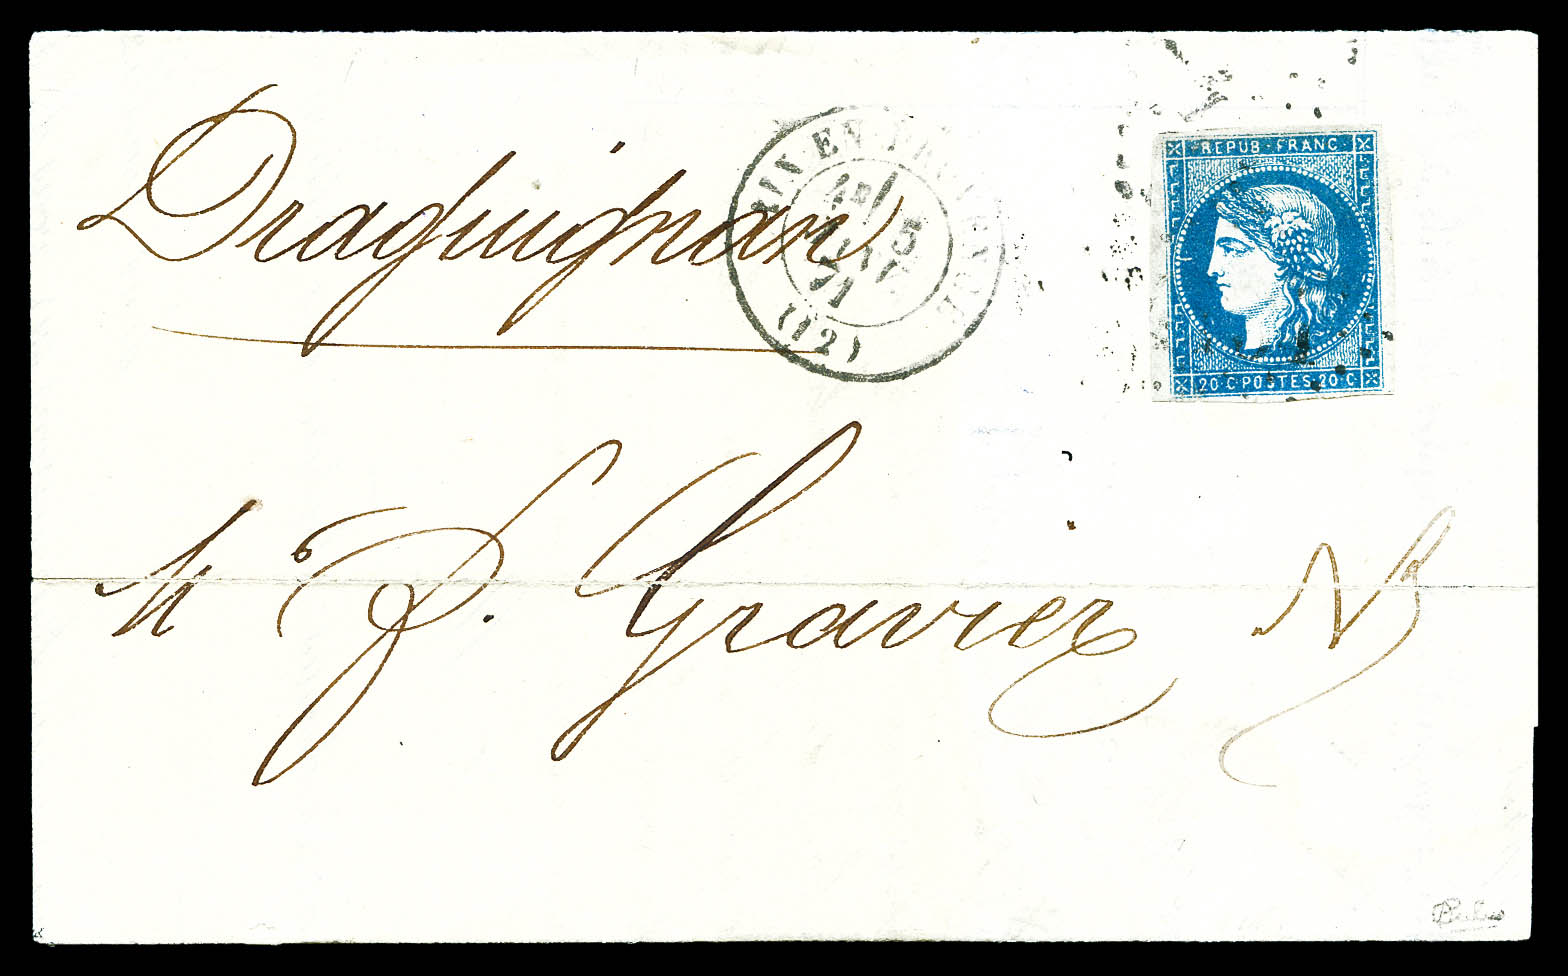 Draguignan
AIX EN PROVENCE
5
JANV
71
(12)
REPUB FRANC
20 C POSTES 20 C
M J. Gravier N